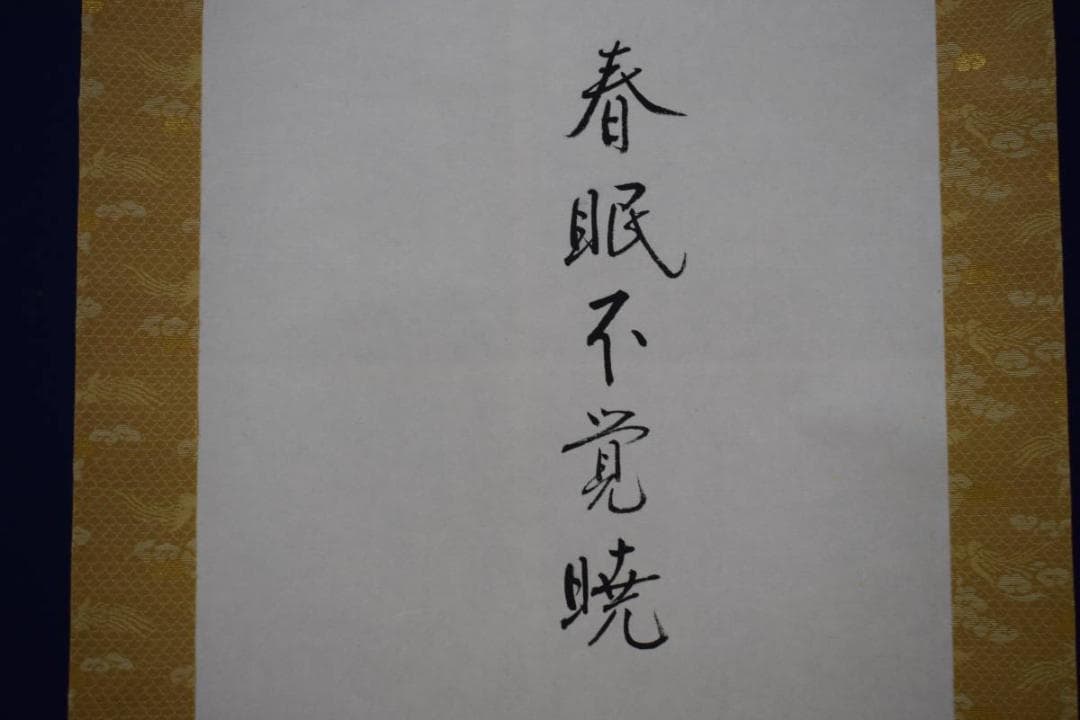 春眠不覚暁